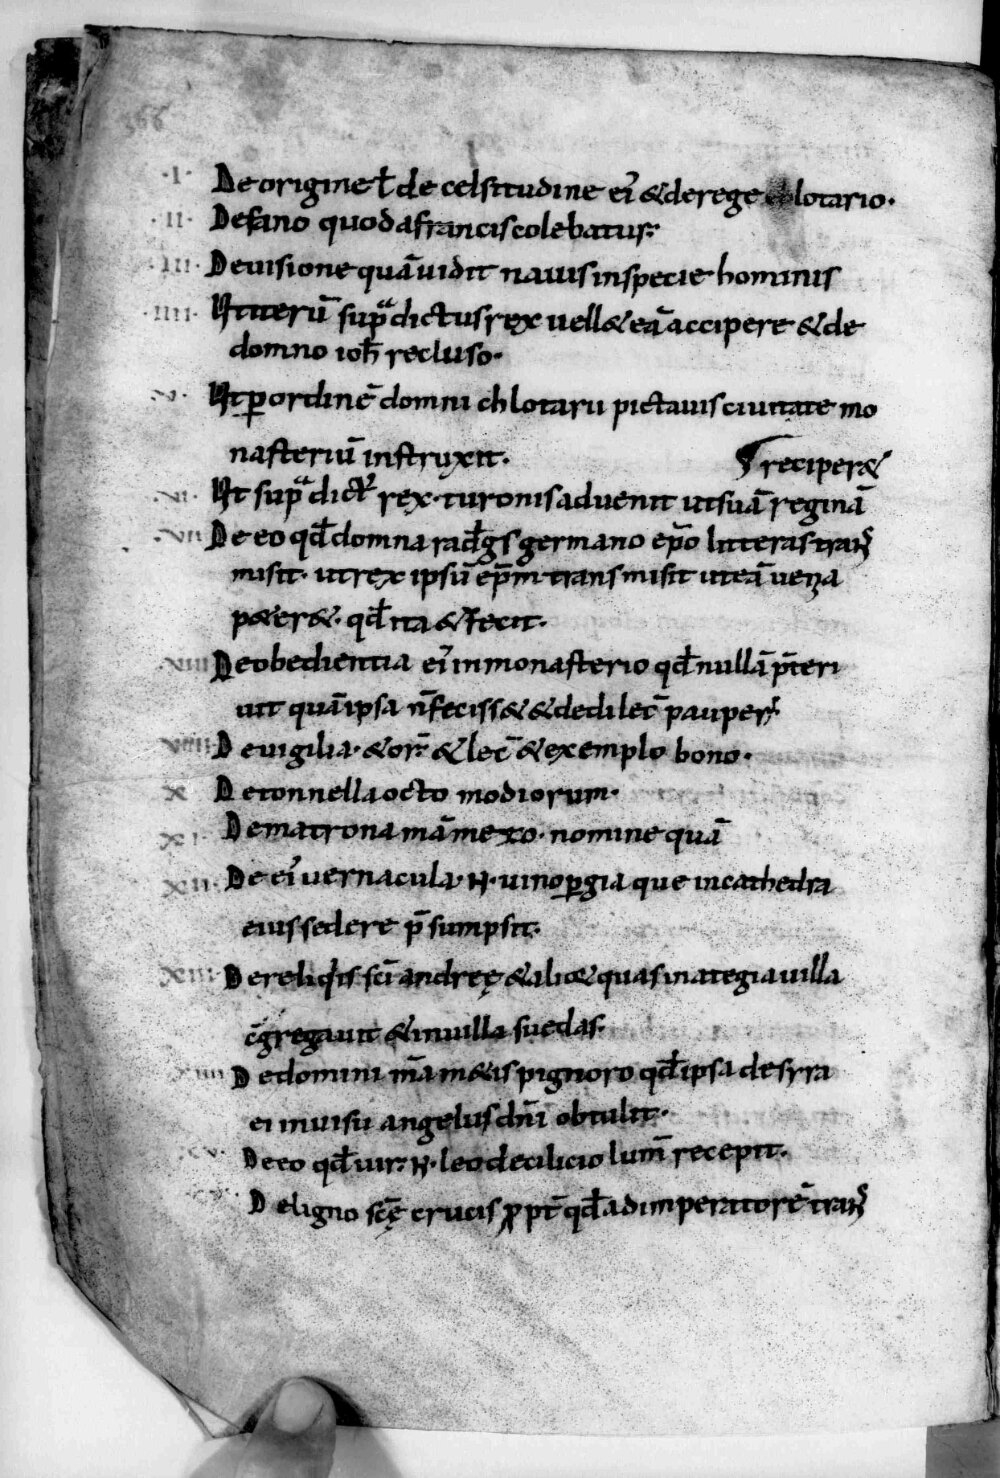 366
·I· De origine ł de celsitudine ei᷒ & de rege chlotario·
·II· De fano quod a francis colebatur·
·III· De uisione quā uidit nauis in specie hominis
·IIII· Ut iterū sup̄dictus rex uell& eā accipere & de
domno ioh̄ recluso·
·V· Ut ꝑ ordinē domni chlotarii pictauis ciuitate mo
nasteriū instruxit· reciper&
·VI· Ut sup̄dict᷒ rex· turonis aduenit ut suā reginā
·VII· De eo qd̄ domna rad̄gs germano ep̄o litteras trans
misit· ut rex ipsū ep̄m transmisit ut eā uenia
p&er&· qd̄ ita & fecit·
VIII De obedientia ei᷒ in monasterio qd̄ nullā p̄teri
uit quā ipsa n̄ feciss& & de dilec̄ pauper·
VIIII De uigilia· & or̄ & lec̄ & exemplo bono·
X De tonnella octo modiorum·
XI· De matrona māmexo· nomine quā
XII· De ei᷒ uernacula· N· uinoꝑgia que in cathedra
eius sedere p̄sumpsit·
XIII De reliq̄is sc̄i andreę & alic& quas in ategia uilla
c̄gregauit & in uilla suedas·
XIIII De domini m̄a m&is pignoro qd̄ ipsa desyra
ei in uisu angelus dn̄i obtulit·
XV· De eo qd̄ uir· N· leo de cilicio lum̄ recepit·
De ligno sc̄ę crucis ꝓpt̄ qd̄ ad imperatorē trans